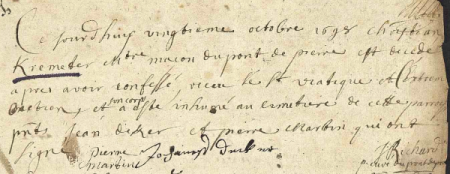 Ce jourdhuy vingtieme octobre 1698 christian
Kremeter maitre macon du pont de pierre est decedé
apres avoir confessé, receu le st viatique et l'extreme
onction, et a esté inhumé au cimetiere de cette parroi
son corps
pnts Jean et pierre Marbin qui ont
signé Pierre Marbin Johannes J Richard